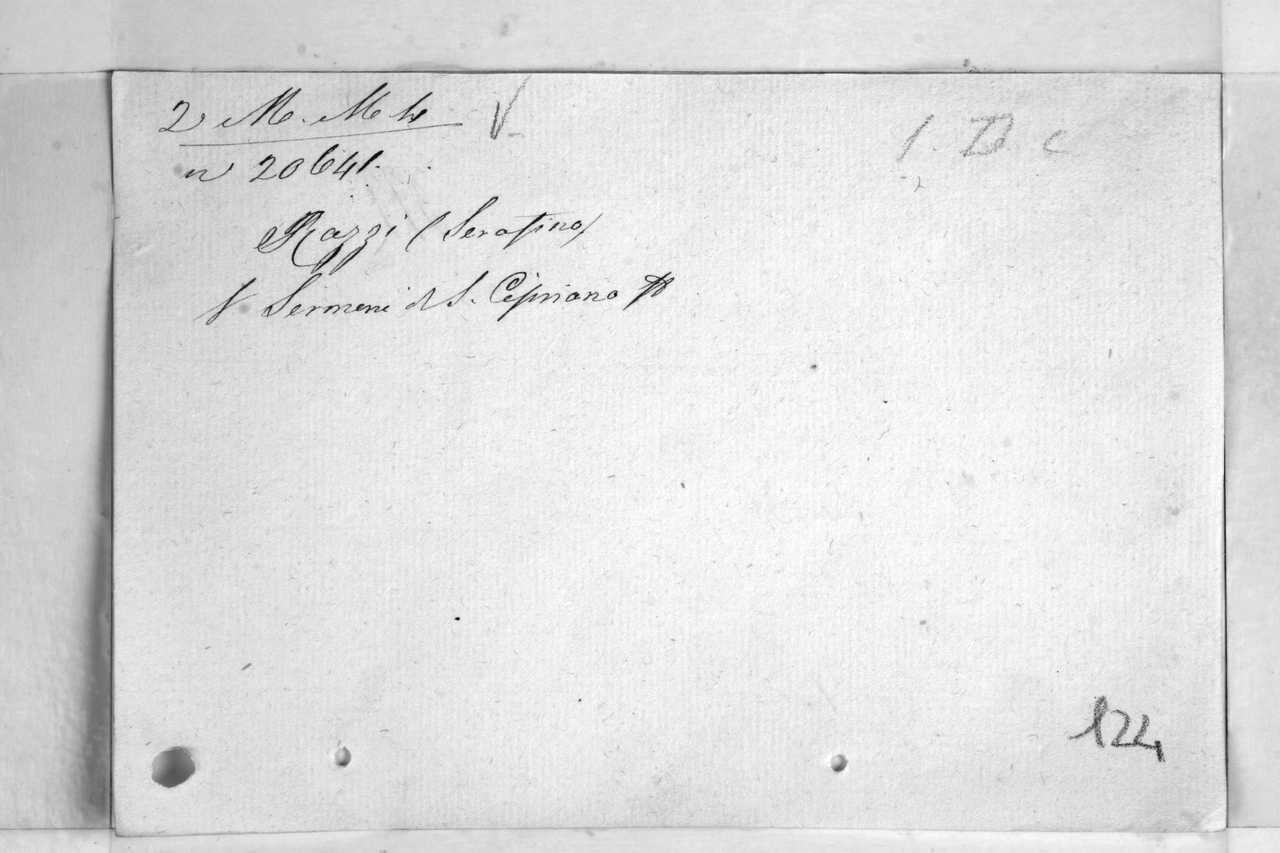 2 M. M. h V
1. D. c
n 20641.
Razzi (Serafino)
V. Sermoni di S. Cipriano
124